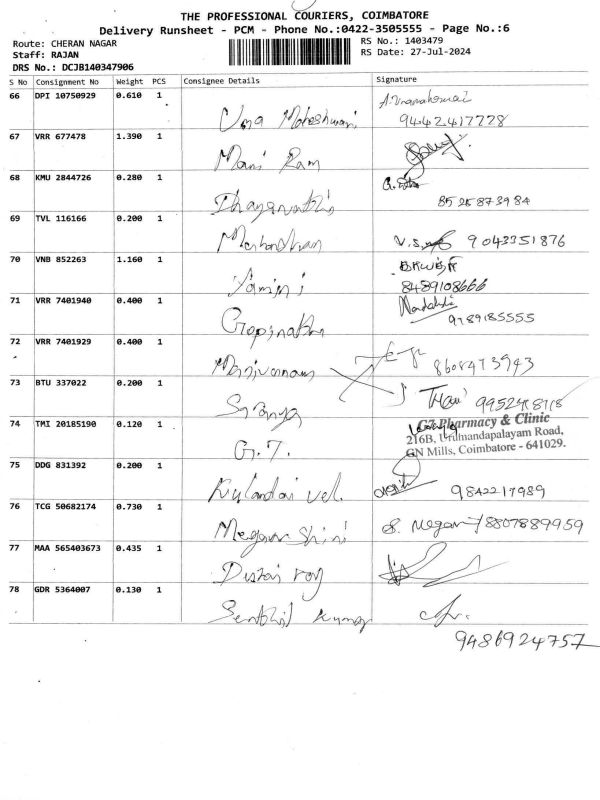 THE PROFESSIONAL COURIERS, COIMBATORE
Delivery Runsheet - PCM - Phone No.:0422-3505555 - Page No.:6
Route: CHERAN NAGAR RS No.: 1403479
Staff: RAJAN RS Date: 27-Jul-2024
DRS No.: DCJB140347906
S No Consignment No Weight PCS Consignee Details Signature
66 DPI 10750929 0.610 1
Uma Maheshwari 9442417728
67 VRR 677478 1.390 1
Mani Ram
68 KMU 2844726 0.280 1
8525873984
69 TVL 116166 0.200 1
9043351876
70 VNB 852263 1.160 1
Yamini 8489108666
71 VRR 7401940 0.400 1
Gopinath 9789185555
72 VRR 7401929 0.400 1
8608473943
73 BTU 337022 0.200 1
Saranya
74 TMI 20185190 0.120 1
G7 Pharmacy & Clinic
216B, Urumandapalayam Road,
GN Mills, Coimbatore - 641029.
G.7.
75 DDG 831392 0.200 1
Kulandai vel. 9842217989
76 TCG 50682174 0.730 1
8807889959
77 MAA 565403673 0.435 1
78 GDR 5364007 0.130 1
Senthil Kumar
9486924757